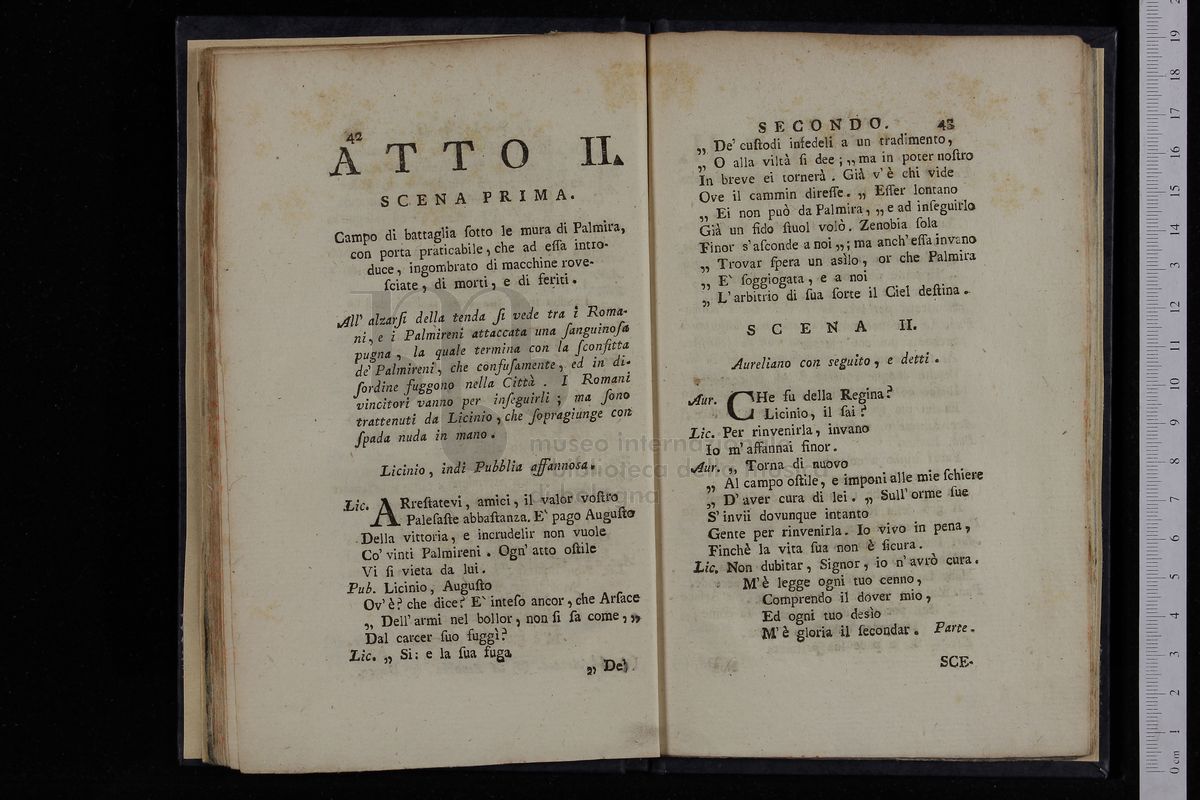 42
ATTO II.
SCENA PRIMA.
Campo di battaglia ſotto le mura di Palmira,
con porta praticabile, che ad eſſa intro-
duce, ingombrato di macchine rove-
ſciate, di morti, e di feriti.
All' alzarſi della tenda ſi vede tra i Roma-
ni, e i Palmireni attaccata una ſanguinoſa
pugna, la quale termina con la ſconfitta
de' Palmireni, che confuſamente, ed in di-
ſordine fuggono nella Città. I Romani
vincitori vanno per inſeguirli; ma ſono
trattenuti da Licinio, che ſopragiunge con
ſpada nuda in mano.
Licinio, indi Pubblia affannosa.
Lic. ARreſtatevi, amici, il valor voſtro
Paleſaſte abbaſtanza. E' pago Auguſto
Della vittoria, e incrudelir non vuole
Co' vinti Palmireni. Ogn' atto oſtile
Vi ſi vieta da lui.
Pub. Licinio, Auguſto
Ov' è? che dice? E' inteſo ancor, che Arſace
„ Dell' armi nel bollor, non ſi ſa come, „
Dal carcer ſuo fuggì?
Lic. „ Sì: e la ſua fuga
„ De'
SECONDO. 43
„ De' cuſtodi infedeli a un tradimento,
„ O alla viltà ſi dee; „ ma in poter noſtro
In breve ei tornerà. Già v' è chi vide
Ove il cammin direſſe. „ Eſſer lontano
„ Ei non può da Palmira, „ e ad inſeguirlo
Già un fido ſtuol volò. Zenobia ſola
Finor s' aſconde a noi „; ma anch' eſſa invano
„ Trovar ſpera un asìlo, or che Palmira
„ E' ſoggiogata, e a noi
„ L' arbitrio di ſua ſorte il Ciel deſtina.
SCENA II.
Aureliano con seguito, e detti.
Aur. CHe fu della Regina?
Licinio, il ſai?
Lic. Per rinvenirla, invano
Io m' affannai finor.
Aur. „ Torna di nuovo
„ Al campo oſtile, e imponi alle mie ſchiere
„ D' aver cura di lei. „ Sull' orme ſue
S' invii dovunque intanto
Gente per rinvenirla. Io vivo in pena,
Finchè la vita ſua non è ſicura.
Lic. Non dubitar, Signor, io n' avrò cura.
M' è legge ogni tuo cenno,
Comprendo il dover mio,
Ed ogni tuo desìo
M' è gloria il ſecondar. Parte.
SCE-
museo internazionale
biblioteca della musica
di bologna
0 cm 1 2 3 4 5 6 7 8 9 10 11 12 13 14 15 16 17 18 19 2